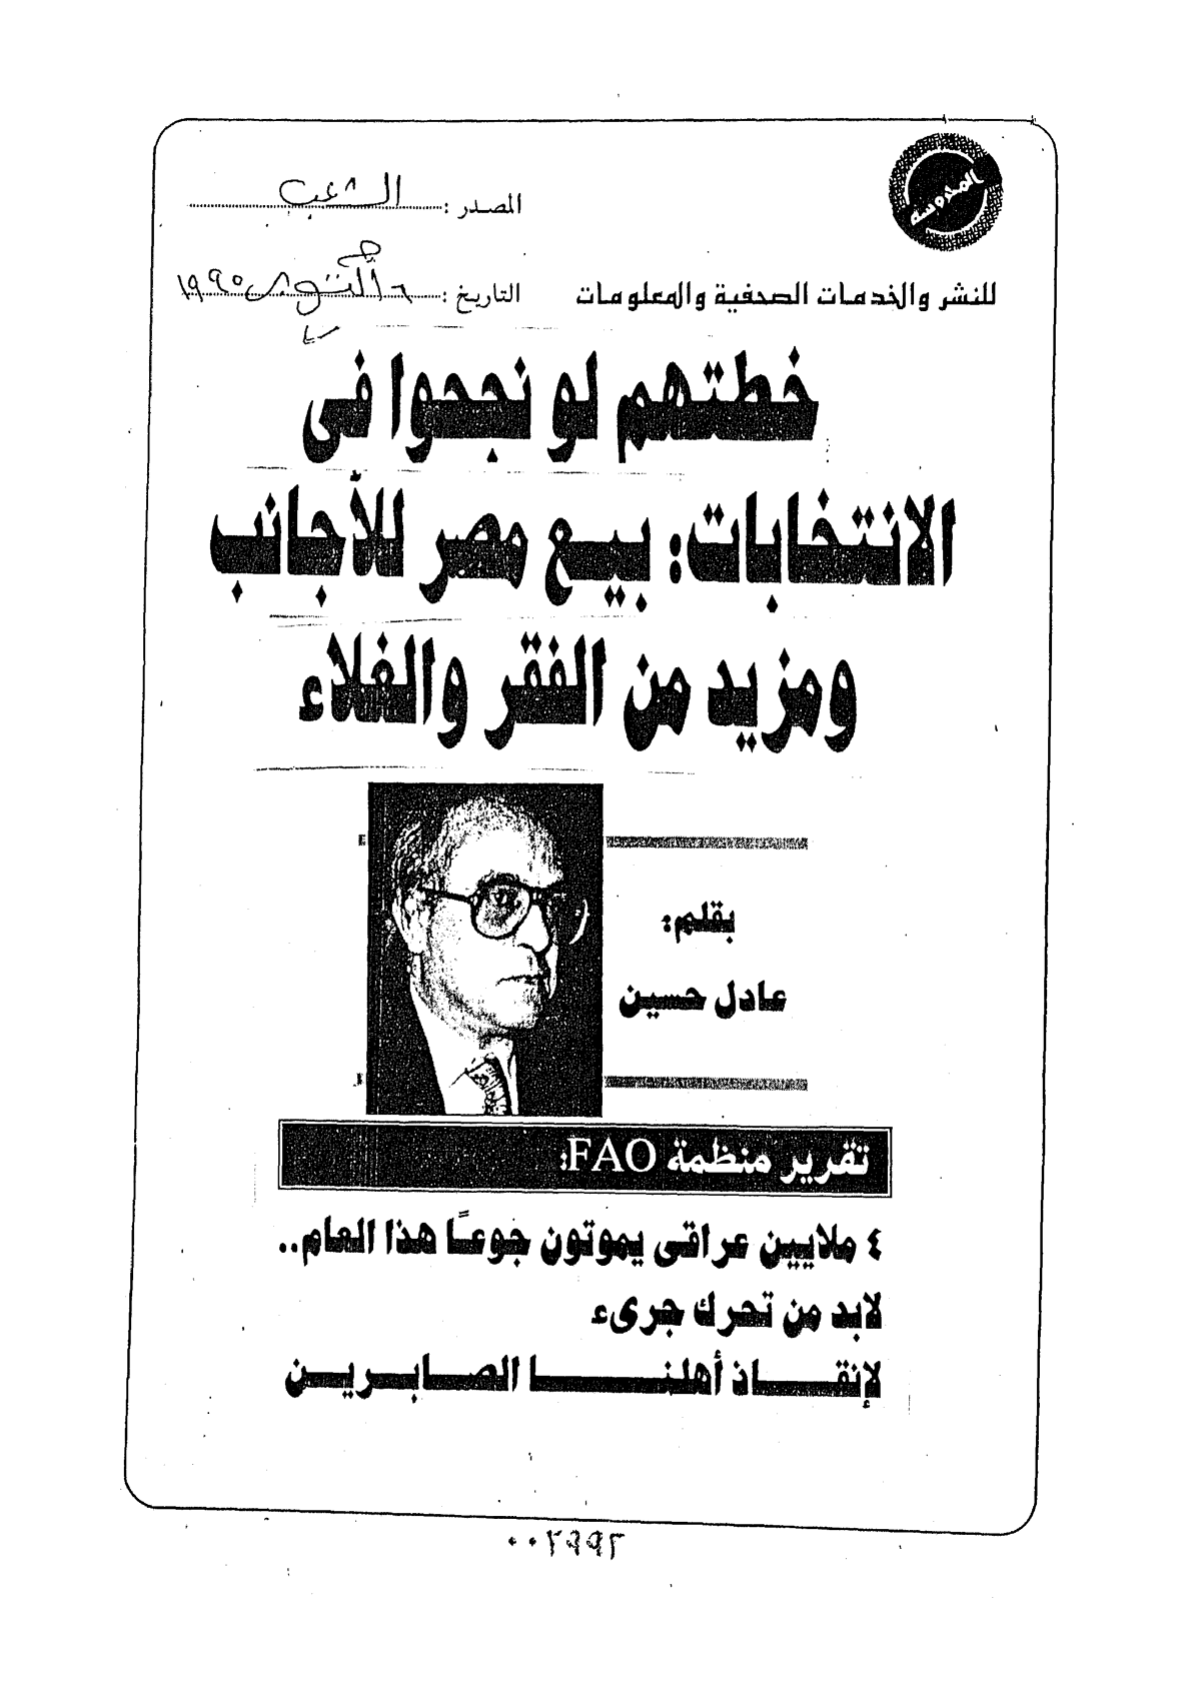 المحروسة
المصدر : الشعب
للنشر والخدمات الصحفية والمعلومات
التاريخ : ٦ أكتوبر ١٩٩٥
خطتهم لو نجحوا فى
الانتخابات: بيع مصر للأجانب
ومزيد من الفقر والغلاء
بقلم:
عادل حسين
تقرير منظمة FAO:
٤ ملايين عراقى يموتون جوعًا هذا العام..
لابد من تحرك جرىء
لإنقاذ أهلنا الصابرين
٠٠٢٩٩٢